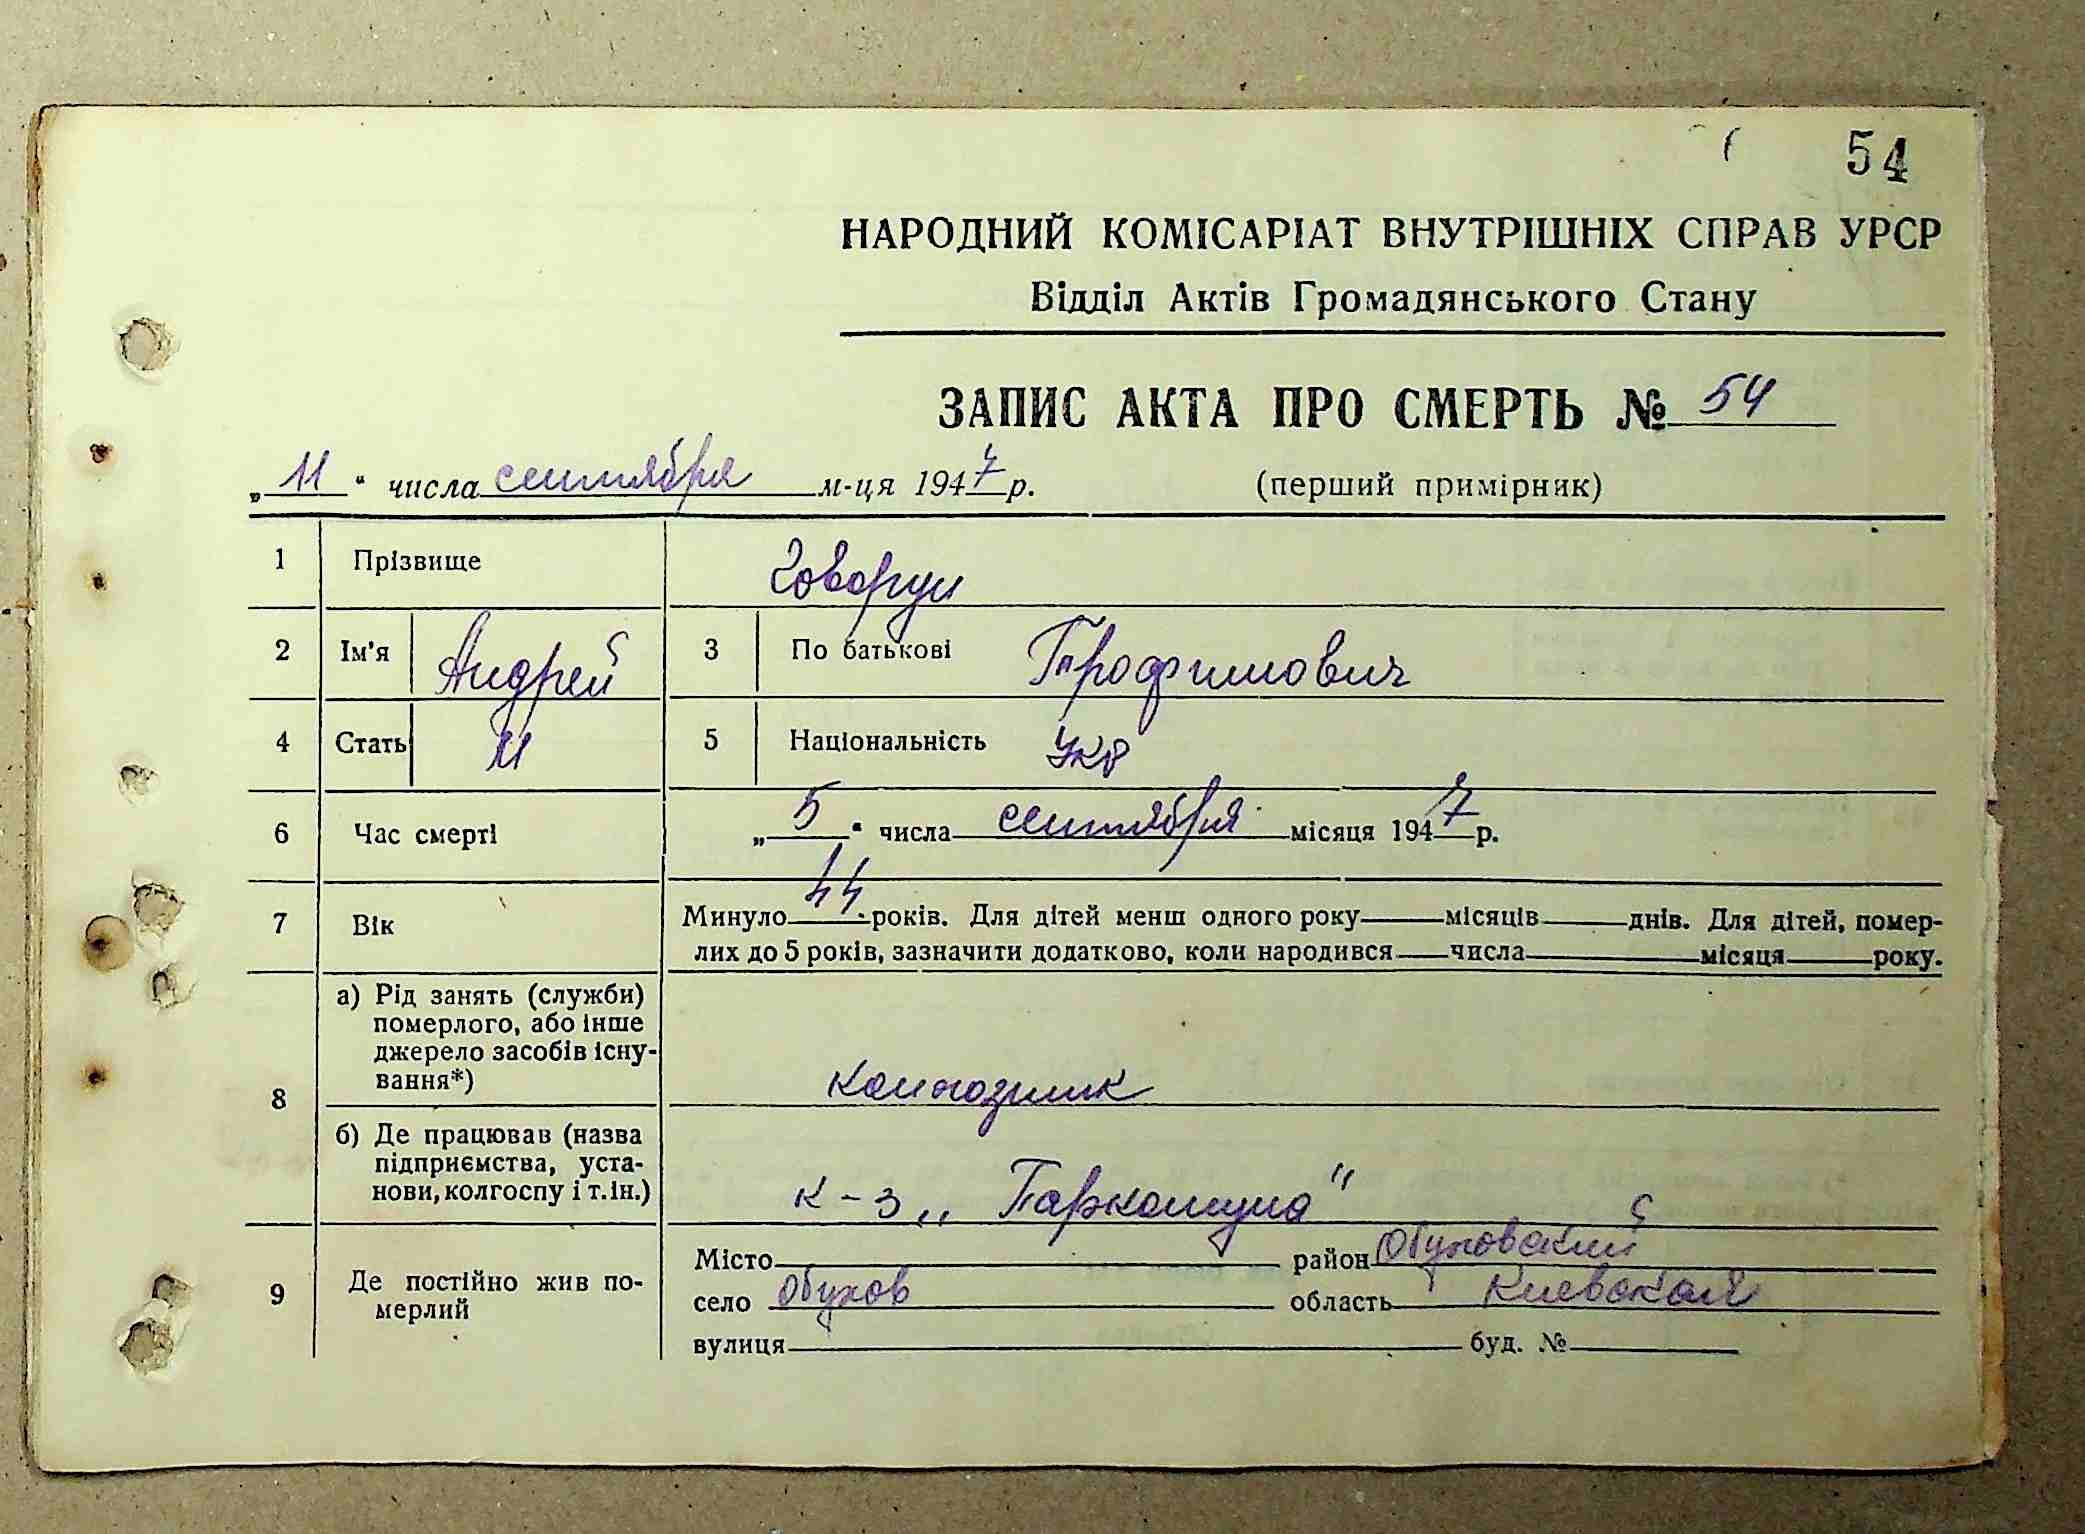 54
НАРОДНИЙ КОМІСАРІАТ ВНУТРІШНІХ СПРАВ УРСР
Відділ Актів Громадянського Стану
ЗАПИС АКТА ПРО СМЕРТЬ № 54
„11“ числа сентября м-ця 1947 р. (перший примірник)
1 Прізвище Говорун
2 Ім'я Андрей 3 По батькові Трофимович
4 Стать М 5 Національність Укр
6 Час смерті „5“ числа сентября місяця 1947 р.
7 Вік Минуло 44 років. Для дітей менш одного року місяців днів. Для дітей, помер-
лих до 5 років, зазначити додатково, коли народився числа місяця року.
8 а) Рід занять (служби)
померлого, або інше
джерело засобів існу-
вання*) колхозник
б) Де працював (назва
підприємства, уста-
нови, колгоспу і т.ін.) к-з „Паркомуна"
9 Де постійно жив по-
мерлий
Місто район Обуховский
село Обухов область Киевская
вулиця буд. №